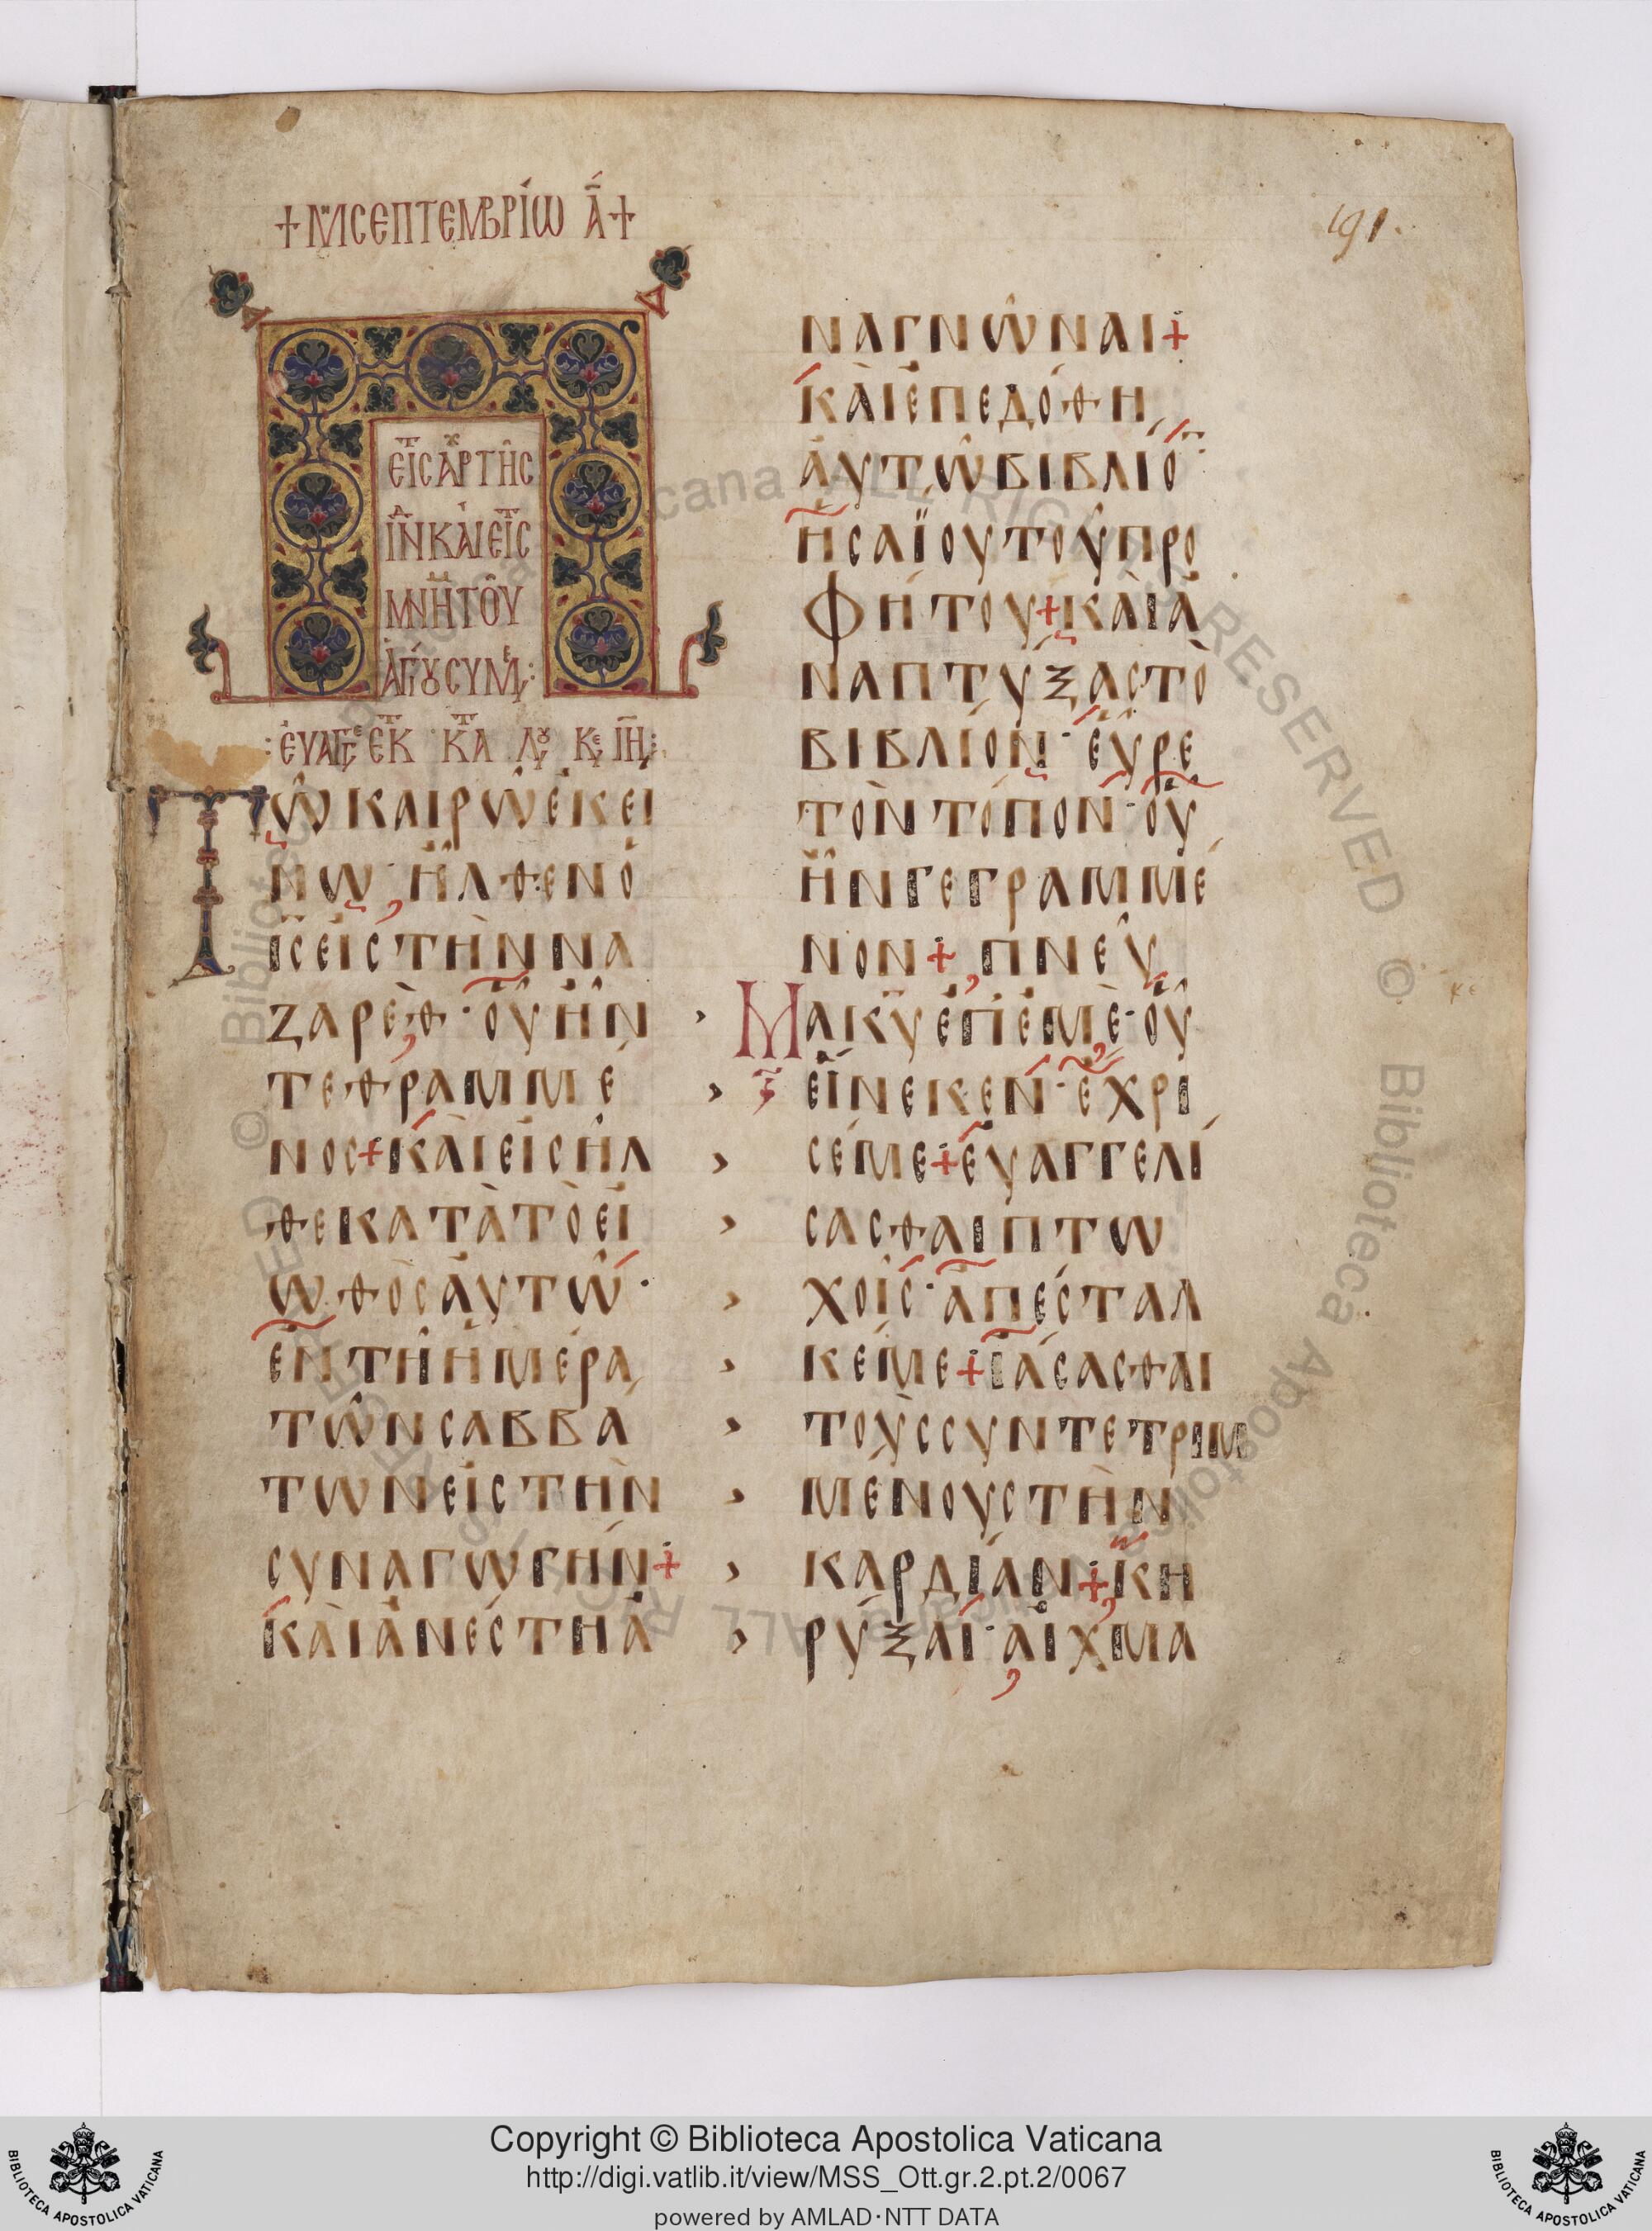 + ΜΗ ΣΕΠΤΕΜΒΡΊΩ Α̅ +
191.
ΕἸΣ ΤῊΝ ἈΡΧ ΤΗ͂Σ
ἸΝΔ ΚΑῚ ΕἸΣ Τ
ΜΝΉΜ ΤΟΥ͂
ἉΓΊΟΥ ΣΥΜΕ:
: ΕΥΑΓΓΕ ΕΚ Τ ΚΤ Α ΛΟΥ ΚΕ ΙΗ :
Τῶ καιρῶ ἐκεί
νω· ἦλθεν ὁ
ις̅ εἰς τὴν Να
ζαρέθ· οὗ ἦν
τεθραμμέ
νος + καὶ εἰσῆλ
θε κατὰ τὸ εἰ
ωθὸς αὐτῶ·
ἐν τῆ ἡμέρα
τῶν σαββά
των εἰς τὴν
συναγωγήν +
καὶ ἀνέστη ἀ
ναγνῶναι +
καὶ ἐπεδόθη
αὐτῶ βιβλίο̅
Ἡσαΐου τοῦ προ
φήτου + καὶ ἀ
ναπτύξας τὸ
βιβλίον· εὗρε
τὸν τόπον· οὗ
ἦν γεγραμμέ
νον + πνεῦ
μα κυ̅ ἐπ' ἐμὲ· οὗ
εἵνεκεν· ἔχρι
σέ με + εὐαγγελί
σασθαι πτω
χοῖς· ἀπέσταλ
κέ με + ἰάσασθαι
τοὺς συντετριμ
μένους τὴν
καρδίαν + κη
ρύξαι· αἰχμα
κε
Copyright © Biblioteca Apostolica Vaticana
http://digi.vatlib.it/view/MSS_Ott.gr.2.pt.2/0067
powered by AMLAD·NTT DATA
BIBLIOTECA APOSTOLICA VATICANA
BIBLIOTECA APOSTOLICA VATICANA
© Biblioteca Apostolica Vaticana ALL RIGHTS RESERVED